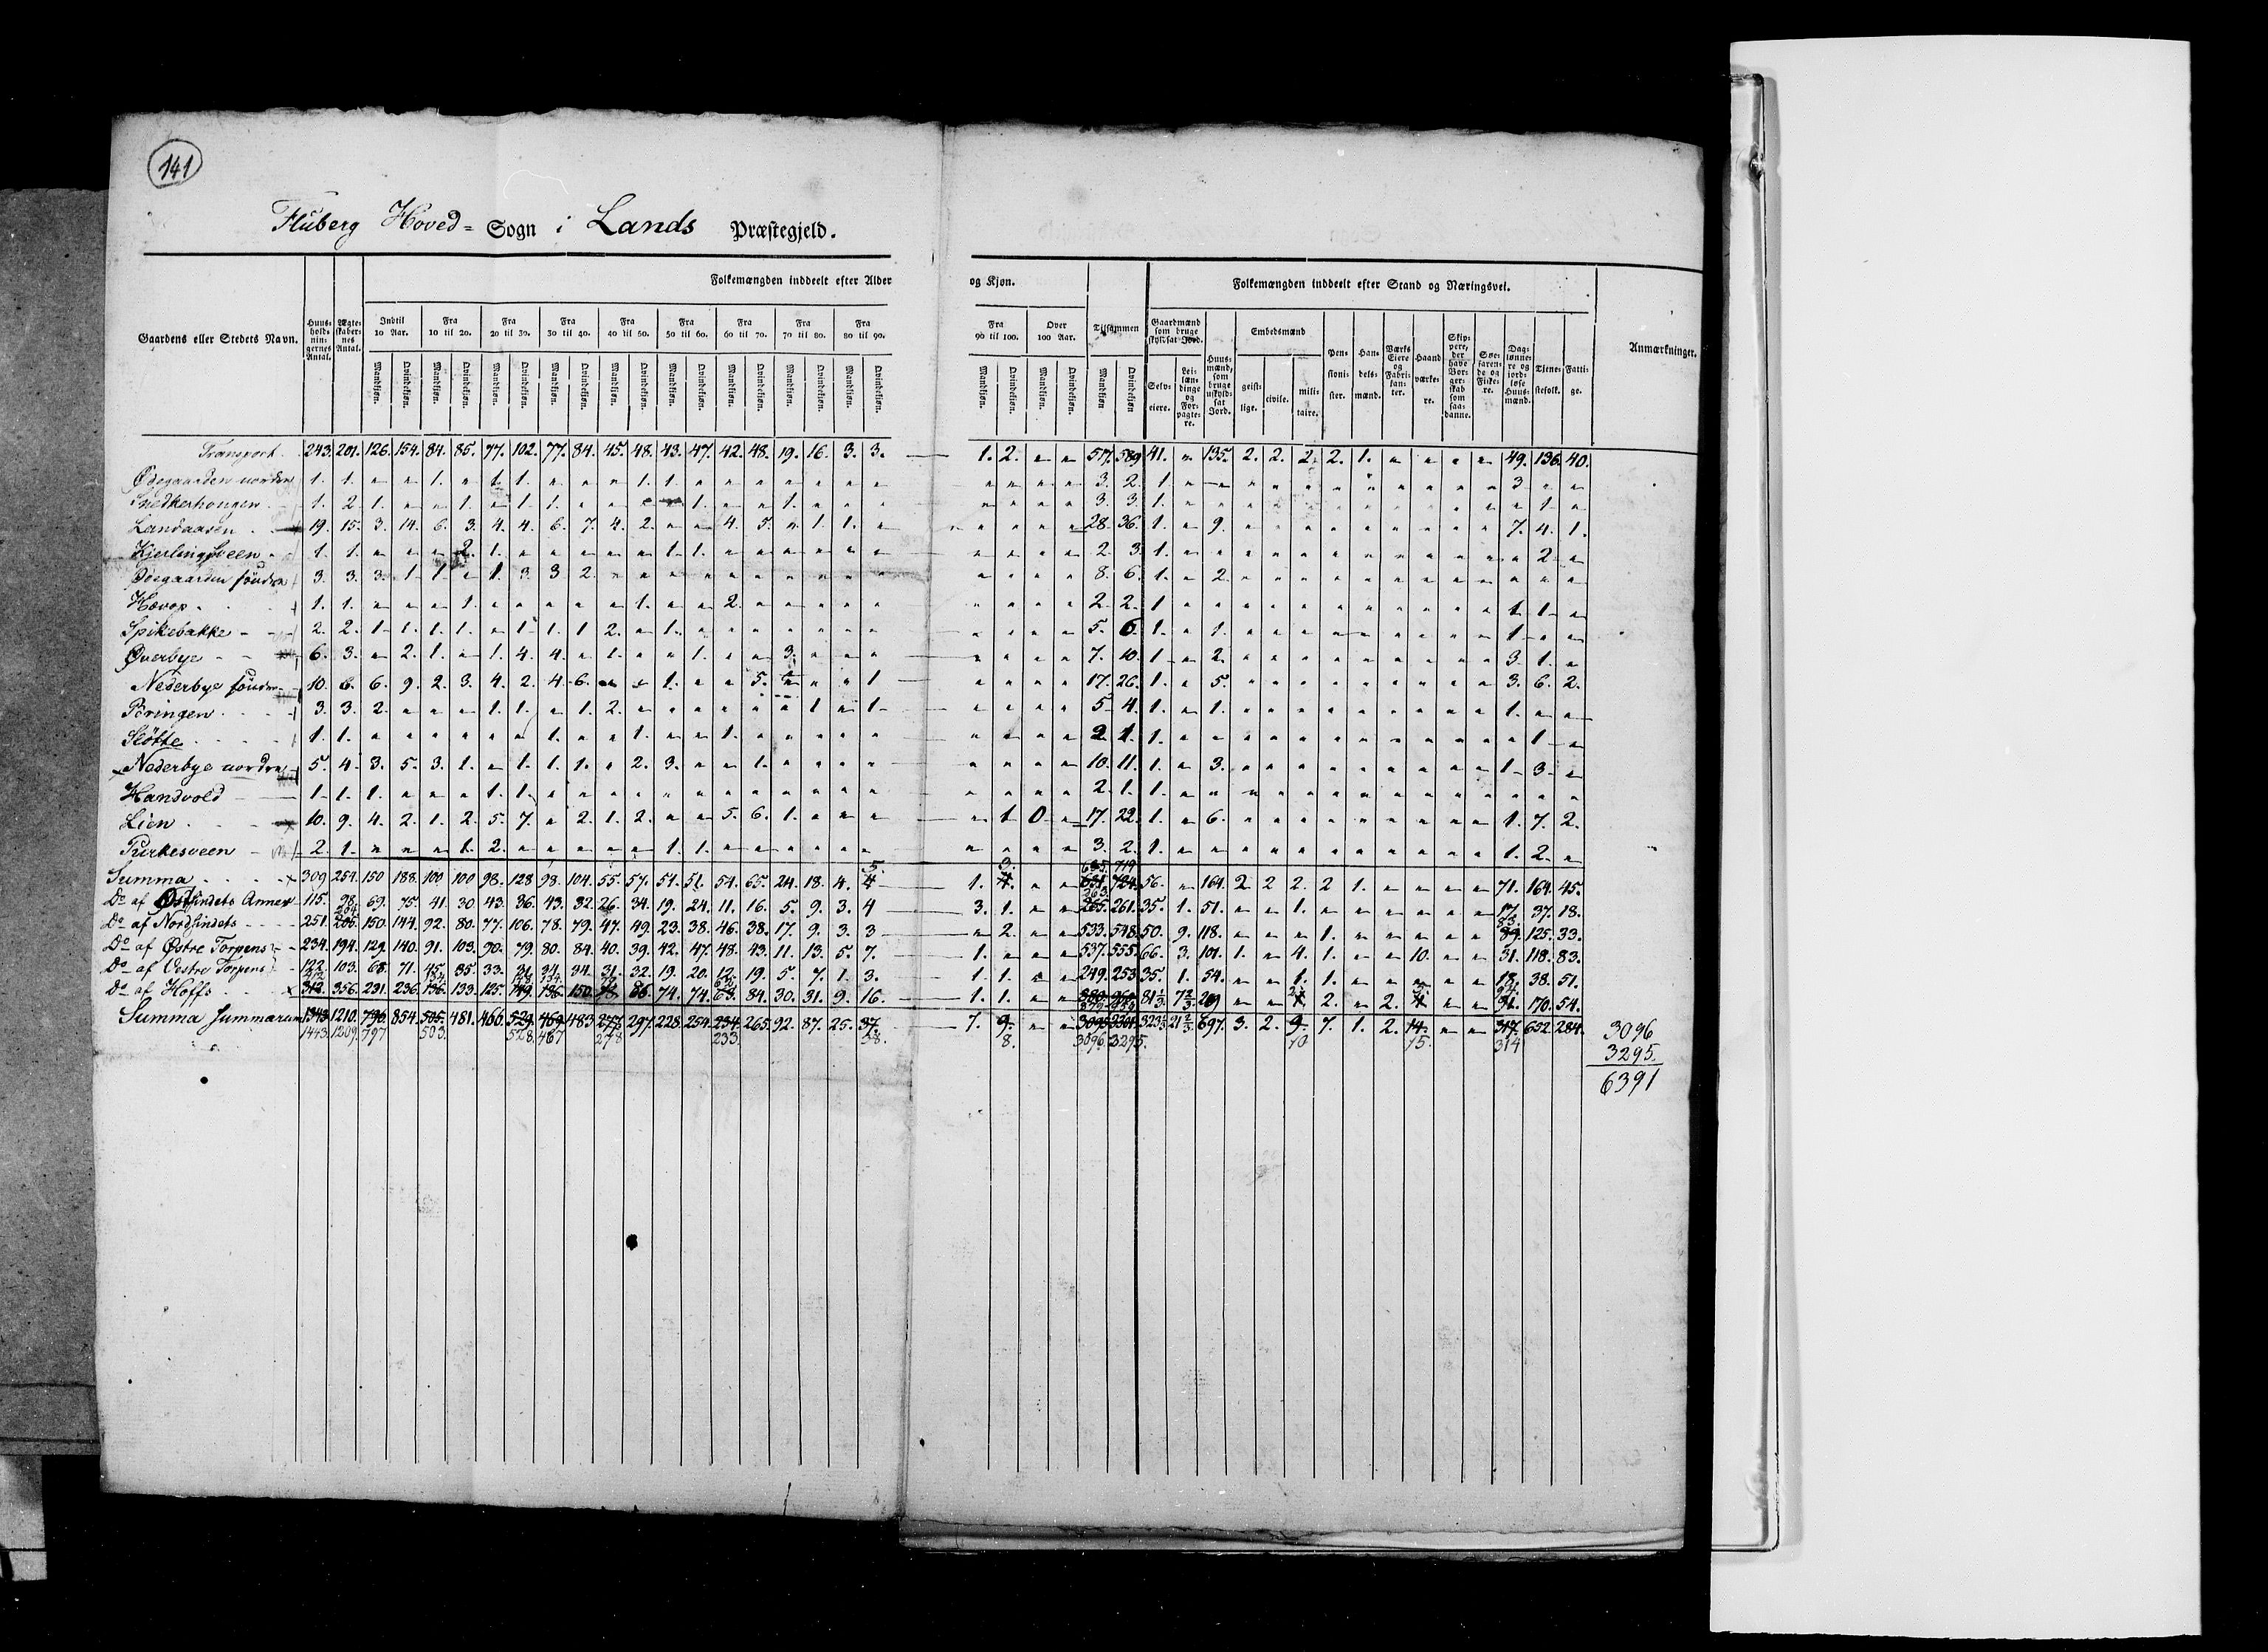 141
Fluberg Hoved= Sogn i Lands Præstegjeld.
Gaardens eller Stedets Navn.
Huus-holdnin-gernes Antal.
Ægte-skaber-nes Antal.
Folkemængden inddeelt efter Alder og Kjøn.
Indtil 10 Aar. Fra 10 til 20. Fra 20 til 30. Fra 30 til 40. Fra 40 til 50. Fra 50 til 60. Fra 60 til 70. Fra 70 til 80. Fra 80 til 90. Fra 90 til 100. Over 100 Aar. Tilsammen
Mandkjøn. Qvindekjøn. Mandkjøn. Qvindekjøn. Mandkjøn. Qvindekjøn. Mandkjøn. Qvindekjøn. Mandkjøn. Qvindekjøn. Mandkjøn. Qvindekjøn. Mandkjøn. Qvindekjøn. Mandkjøn. Qvindekjøn. Mandkjøn. Qvindekjøn. Mandkjøn. Qvindekjøn. Mandkjøn. Qvindekjøn. Mandkjøn Qvindekjøn
Folkemængden inddeelt efter Stand og Næringsvei.
Gaardmænd som bruge skyldsat Jord.
Selv-eiere.
Lei-læn-dinge og For-pagte-re.
Huus-mænd, som bruge uskyld-sat Jord.
Embedsmænd
geist-lige. civile. mili-taire.
Pen-sioni-ster.
Han-dels-mænd.
Værks Eiere og Fabri-kan-ter.
Haand værke-re.
Skip-pere, der have Bor-ger-skab som saa-danne.
Søe-faren-de og Fiske-re.
Dag-lønne-re og jord-løse Huus-mænd.
Tjene-stefolk.
Fatti-ge.
Anmærkninger.
Transport 243. 201. 126. 154. 84. 85. 77. 102. 77. 84. 45. 48. 43. 47. 42. 48. 19. 16. 3. 3. 1. 2. " " 577. 589 41. " 135. 2. 2. 2. 2. 1. " " " " 49. 136. 40.
Ødegaarden nordre 1. 1. " " 1. " 1. 1. " " " 1. 1. " " " " " " " " " " " 3. 2. 1. " " " " " " " " " " " 3 " "
Snedkerhougen 1. 2. 1. " " 1. " 1. 1. " " " " 1. " " 1. " " " " " " " 3. 3. 1. " " " " " " " " " " " " 1. "
Landaasen 19. 15. 3. 14. 6. 3. 4. 4. 6. 7. 4. 2. " " 4. 5. " 1. 1. " " " " " 28. 36. 1. " 9. " " " " " " " " " 7. 4. 1.
Kjerlingsveen 1. 1. " " " 2. 1. " " " " " 1. 1. " " " " " " " " " " 2. 3. 1. " " " " " " " " " " " " 2. "
Ødegaarden søndre 3. 3. 3. 1. 1. " 1. 3. 3 2. " " " " " " " " " " " " " " 8. 6. 1. " 2. " " " " " " " " " " " "
Hævop 1. 1. " " " 1. " " " " " 1. " " 2. " " " " " " " " " 2. 2. 1. " " " " " " " " " " " 1. 1. "
Spikebakke 2. 2. 1. 1. 1. 1. " 1. 1. 1 2. " 1. " " " " " " " " " " " 5. 6. 1. " 1. " " " " " " " " " 1. " "
Øverbye 6. 3. " 2. 1. " 1. 4. 4. " 1. " " 1. " " 3. " " " " " " " 7. 10. 1. " 2. " " " " " " " " " 3. 1. "
Nederbye søndre 10. 6. 6. 9. 2. 3. 4. 2. 4. 6. " " 1. " " 5. " " " 1 " " " " 17. 26. 1. " 5. " " " " " " " " " 3. 6. 2.
Pöringen 3. 3. 2. " " " 1. 1. " 1. 2. " " " " " " 1 " 1. " " " " 5. 4. 1. " 1. " " " " " " " " " 1. " "
Slötte 1. 1. " " " " " " 1. " " 1. " " 1. " " " " " " " " " 2. 1. 1. " " " " " " " " " " " " 1. "
Nederbye nordre 5. 4. 3. 5. 3. 1. " 1. 1. 1. " 2. 3. " " 1. " " " " " " " " 10. 11. 1. " 3. " " " " " " " " " 1. 3. "
Handvold 1. 1. 1. " " " 1. 1. " " " " " " " " " " " " " " " " 2. 1. 1. " " " " " " " " " " " " " "
Lien 10. 9. 4. 2. 1. 2. 5. 7. " 2. 1. 2. " " 5. 6. 1. " " " " 1. 0 " 17. 22. 1. " 6. " " " " " " " " " 1. 7. 2.
Purkesveen 2. 1. " " " 1. 2. " " " " " 1. 1. " " " " " " " " " " 3. 2. 1. " " " " " " " " " " " 1. 2. "
5. 3. 635. 719
Summa 309 254. 150 188. 100 100 98. 128 98. 104. 55. 57. 54. 51. 54. 65. 24. 18. 4. 4 1. 4. " " 631. 724. 56. " 164. 2 2 2. 2 1. " " " " 71. 164. 45.
Do af Østsindets Annex 115. 98. 69. 75. 41. 30 43. 36. 43. 32. 26. 34. 19. 24. 11. 16. 5. 9. 3. 4 3. 1. " " 265. 261. 35. 1. 51. " " 1. " " " " " " 17. 37. 18.
263.
Do af Nordsindets 251. 205. 150. 144. 92. 80. 77. 106. 78. 79. 47. 49. 23. 38. 46. 38. 17. 9. 3. 3 " 2. " " 533. 548. 50. 9. 118. " " " 1. " " " " " 89. 125. 33.
204. 83.
Do af Østre Torpens 234. 194. 129. 140. 91. 103. 90. 79. 80. 84. 40. 39. 42. 47. 48. 43. 11. 13. 5. 7. 1. " " " 537. 555. 66. 3. 101. 1. " 4. 1. " " 10. " " 31. 118. 83.
Do af Vestre Torpens 122. 103. 68. 71. 45. 35. 33. 31. 34. 34. 31. 32. 19. 20. 12. 19. 5. 7. 1. 3. 1. 1. " " 249. 253 35. 1. 54. " " 1. 1. " " " " " 18. 38. 51.
Do af Hoffs 312. 356. 231. 236. 136. 133. 125. 149. 136. 150. 78. 86. 74. 74. 63. 84. 30. 31. 9. 16. 1. 1. " " 880. 960. 81⅓. 7⅔. 209 " " 1. 2. " 2. 4. " " 91. 170. 54.
Summa summarum 1343 1210. 796. 854. 505. 481. 466. 529. 469. 483. 277. 297. 228. 254. 234. 265. 92. 87. 25. 37. 7. 9. " " 3095 3301. 323⅓ 21⅔. 697. 3. 2. 9. 7. 1. 2. 14. " " 317. 652. 284.
1443. 1209. 797 503. 528. 467 278 233. 38. 8. 3096. 3295. 10 15. 314
3096
3295.
6391